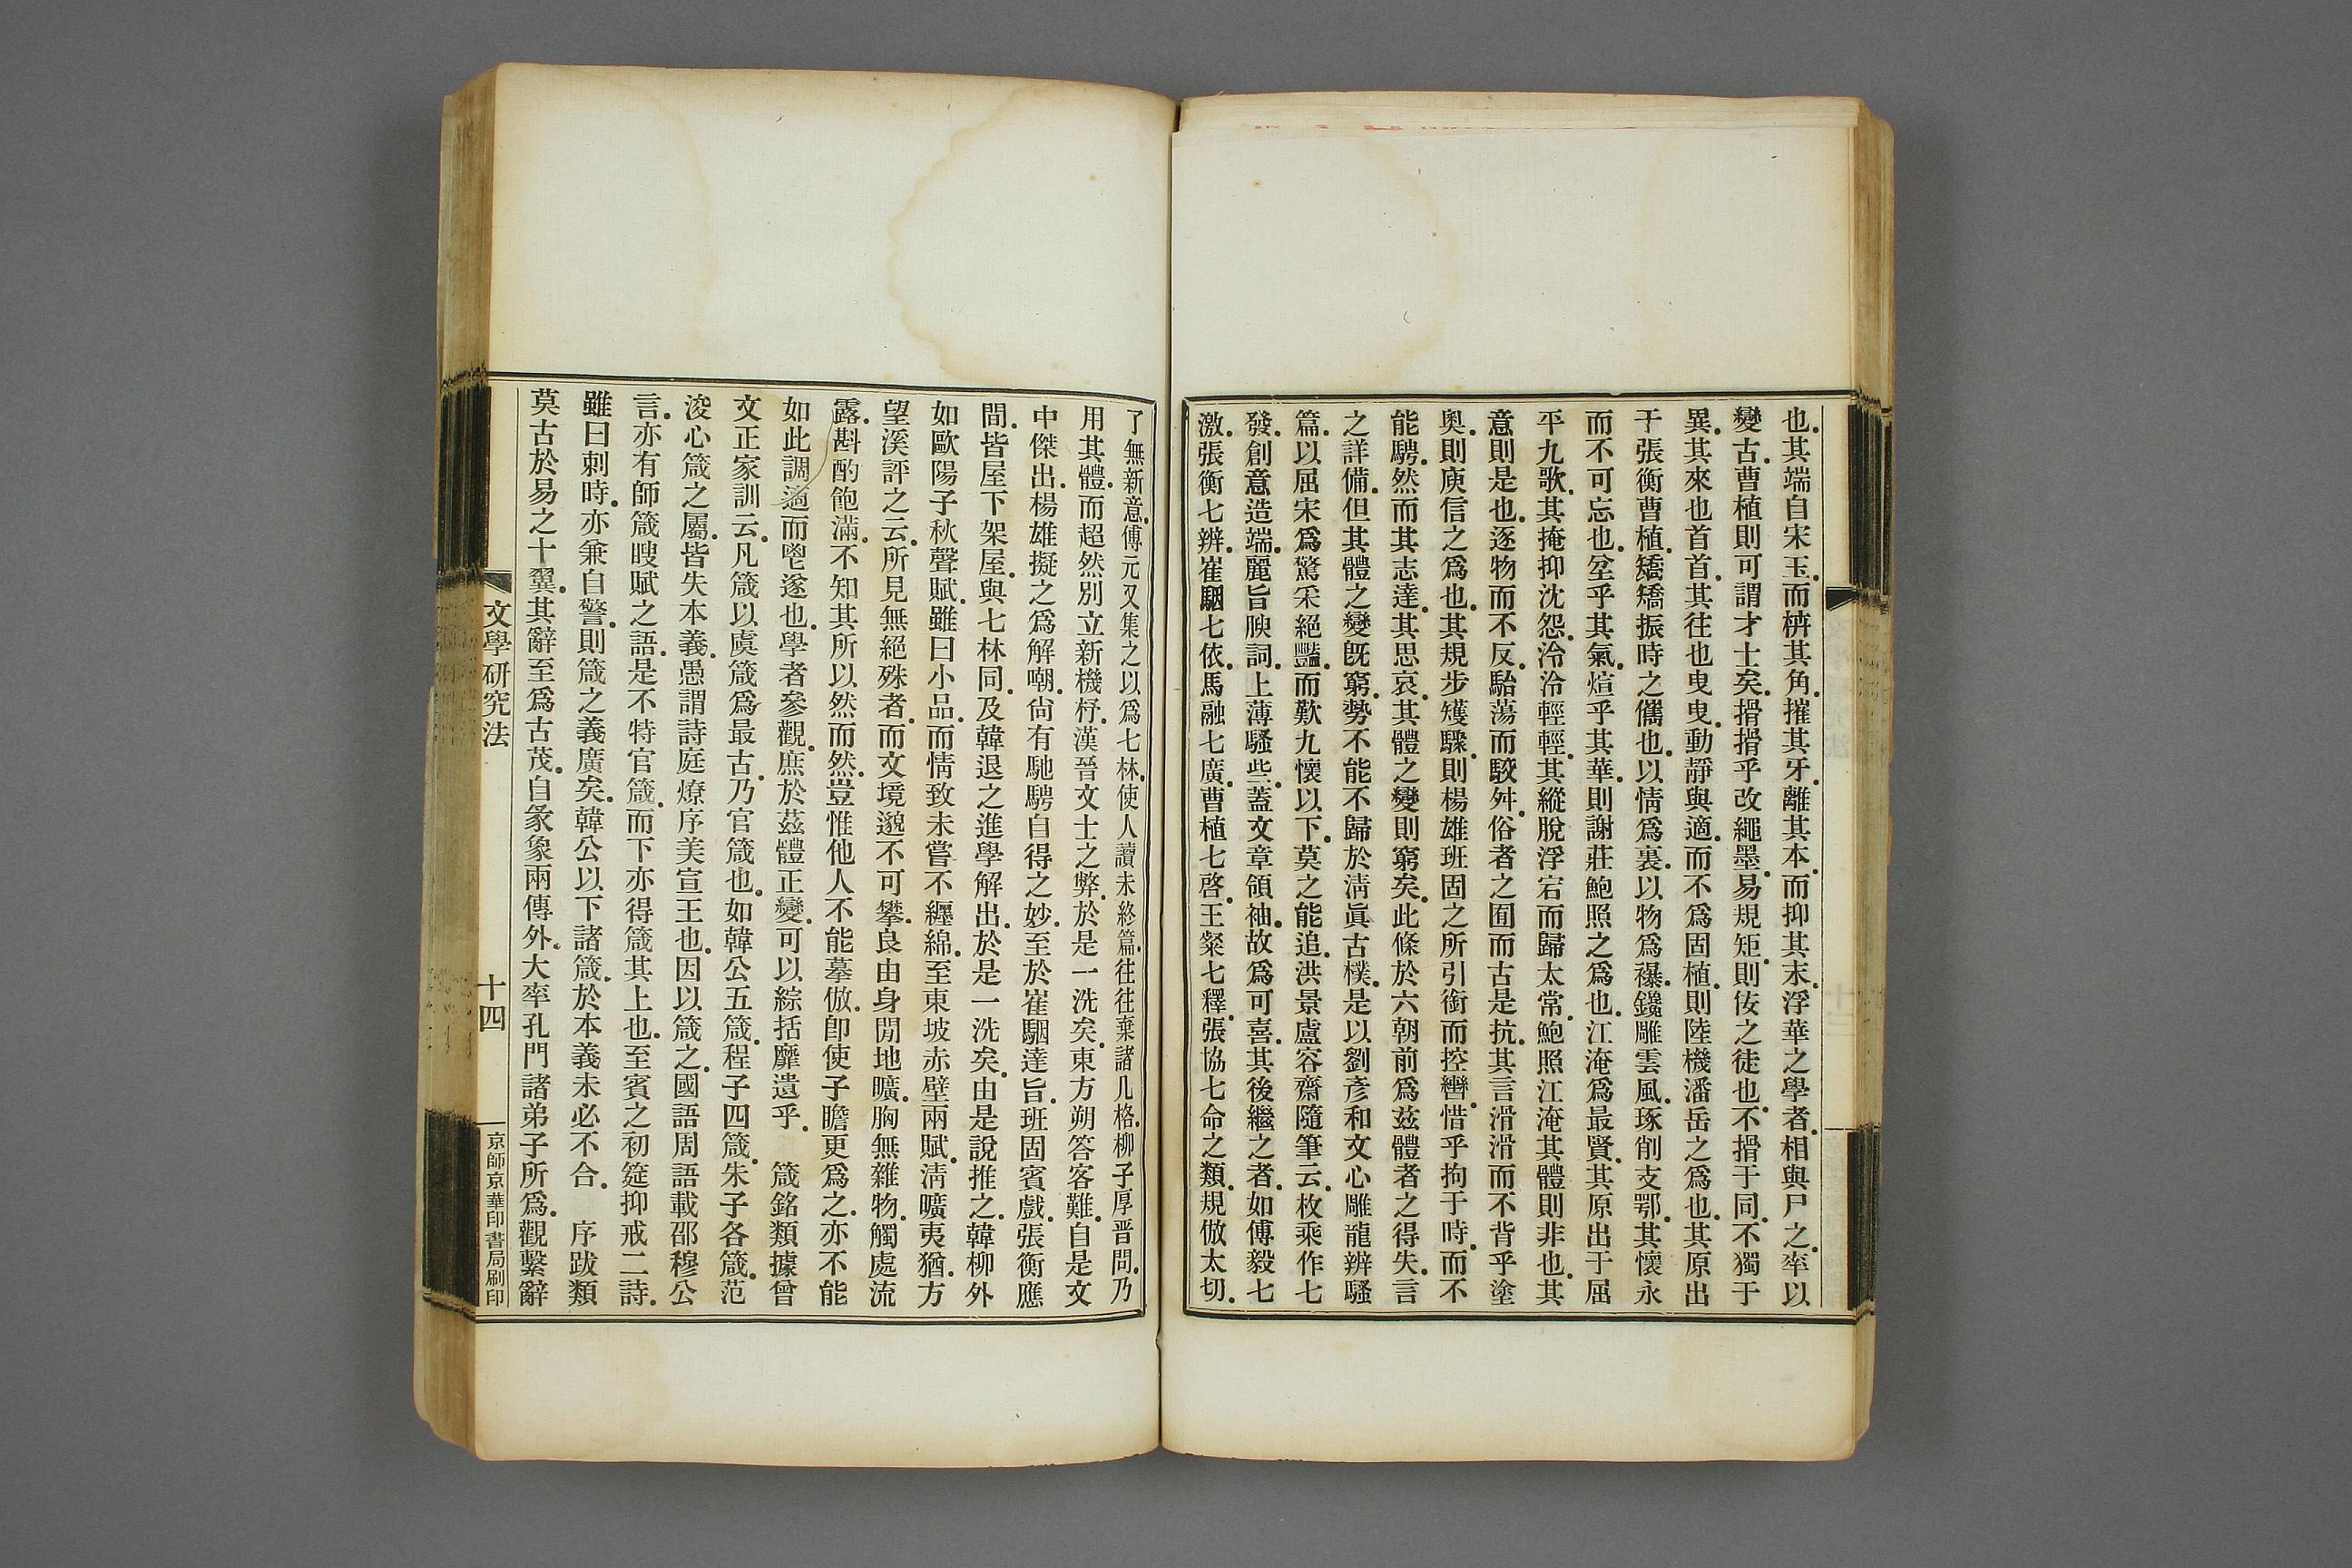 也其端自宋玉而枿其角摧其牙離其本而抑其末浮華之學者相與尸之率以
變古曹植則可謂才士矣搰搰乎改繩墨易規矩則佞之徒也不搰于同不獨于
異其來也首首其往也曳曳動靜與適而不爲固植則陸機潘岳之爲也其原出
于張衡曹植矯矯振時之儁也以情爲裏以物爲襮鑱雕雲風琢削支鄂其懷永
而不可忘也坌乎其氣煊乎其華則謝莊鮑照之爲也江淹爲最賢其原出于屈
平九歌其掩抑沈怨泠泠輕輕其縱脫浮宕而歸太常鮑照江淹其體則非也其
意則是也逐物而不反駘蕩而駮舛俗者之囿而古是抗其言滑滑而不背乎塗
奧則庾信之爲也其規步矱驟則楊雄班固之所引銜而控轡惜乎拘于時而不
能騁然而其志達其思哀其體之變則窮矣此條於六朝前爲茲體者之得失言
之詳備但其體之變旣窮勢不能不歸於淸眞古樸是以劉彥和文心雕龍辨騷
篇以屈宋爲驚采絕豔而歎九懷以下莫之能追洪景盧容齋隨筆云枚乘作七
發創意造端麗旨腴詞上薄騷些蓋文章領袖故爲可喜其後繼之者如傅毅七
激張衡七辨崔駰七依馬融七廣曹植七啓王粲七釋張協七命之類規倣太切
了無新意傅元又集之以爲七林使人讀未終篇往往棄諸几格柳子厚晋問乃
用其體而超然別立新機杼漢晉文士之弊於是一洗矣東方朔答客難自是文
中傑出楊雄擬之爲解嘲尙有馳騁自得之妙至於崔駰達旨班固賓戲張衡應
間皆屋下架屋與七林同及韓退之進學解出於是一洗矣由是說推之韓柳外
如歐陽子秋聲賦雖曰小品而情致未嘗不纒綿至東坡赤壁兩賦淸曠夷猶方
望溪評之云所見無絕殊者而文境邈不可攀良由身閒地曠胸無雜物觸處流
露斟酌飽滿不知其所以然而然豈惟他人不能摹倣卽使子瞻更爲之亦不能
如此調適而鬯遂也學者參觀庶於茲體正變可以綜括靡遺乎　箴銘類據曾
文正家訓云凡箴以虞箴爲最古乃官箴也如韓公五箴程子四箴朱子各箴范
浚心箴之屬皆失本義愚謂詩庭燎序美宣王也因以箴之國語周語載邵穆公
言亦有師箴瞍賦之語是不特官箴而下亦得箴其上也至賓之初筵抑戒二詩
雖曰刺時亦兼自警則箴之義廣矣韓公以下諸箴於本義未必不合　序跋類
莫古於易之十翼其辭至爲古茂自彖象兩傳外大率孔門諸弟子所爲觀繫辭
文學研究法
十四
京師京華印書局刷印